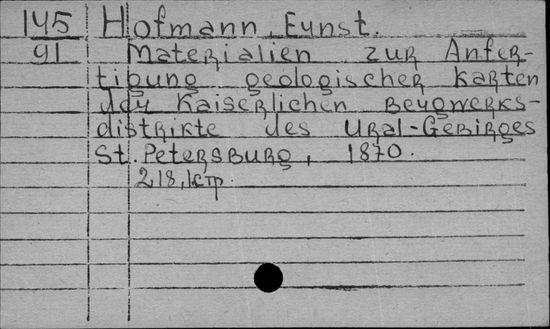 145 Hofmann, Eynst.
91 Materialien zur Anfer-
tibung geologischer Karten
der Kaiserlichen Beygwerks-
distrikte des Ural-Gebirges
St. Petersburg, 1870.
218, 1 стр.